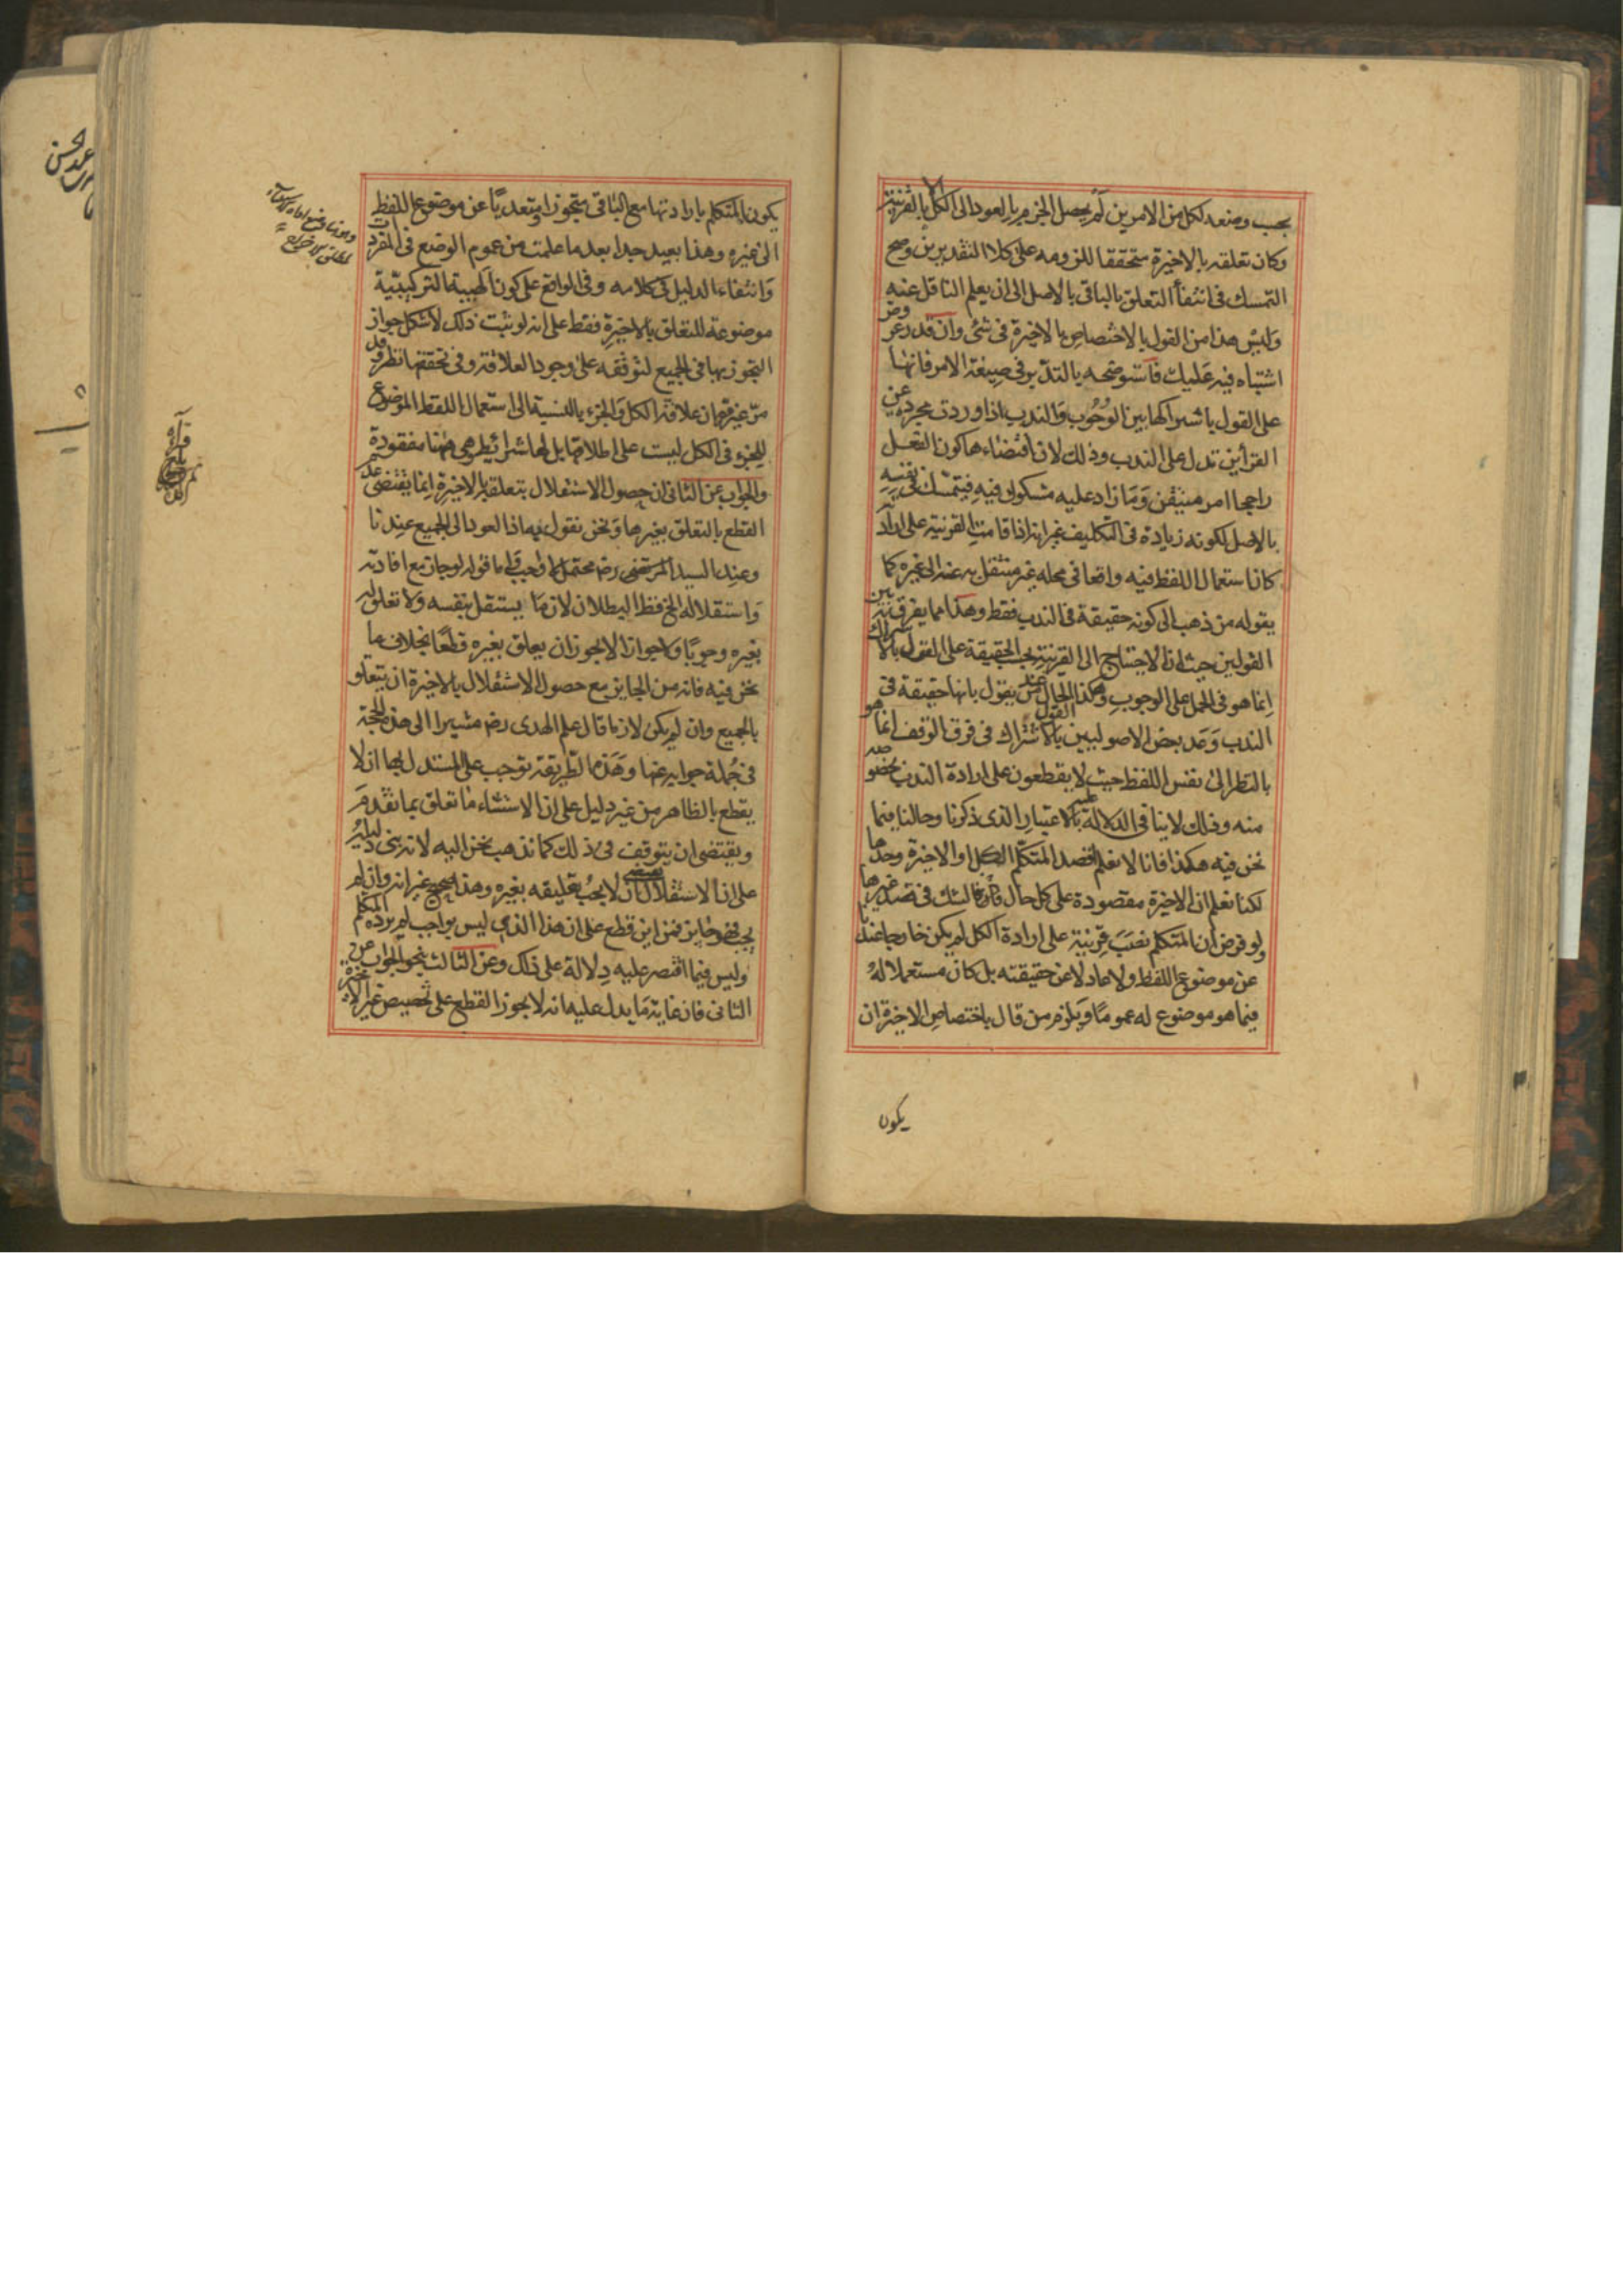 بحسب وضعه لكل من الامرين لم يحصل الجزم بالعود الى الكل الا بالقرينة
وكان تعلقه بالاخيرة متحققا للزومه على كلا التقديرين وصح
التمسك فى انتفاء التعلق بالباقى بالاصل الى ان يعلم الناقل عنه
وليس هذا من القول بالاختصاص بالاخيرة فى شئ وان قدر عروض
اشتباه فيه عليك فاستوضحه بالتدبر فى صيغة الامر فانها
على القول باشتراكها بين الوجوب والندب اذا وردت مجردة عن
القرائن تدل على الندب وذلك لان اقتضاءها كون الفعل
راجحا امر متيقن وما زاد عليه مشكوك فيه فيتمسك فى نفيه
بالاصل لكونه زيادة فى التكليف غير انه اذا قامت القرينة على ارادته
كان استعمال اللفظ فيه واقعا فى محله غير منتقل به عنه الى غيره كما
يقوله من ذهب الى كونه حقيقة فى الندب فقط وهذا مما يفرق به بين
القولين حيث ان الاحتياج الى القرينة بحسب الحقيقة على القول بالاشتراك
انما هو فى الحمل على الوجوب وهكذا الحال عند من يقول بانها حقيقة فى
الندب وعد بعض الاصوليين القول بالاشتراك فى فرق الوقف انما هو
بالنظر الى نفس اللفظ حيث لا يقطعون على ارادة الندب بخصوصه
منه وذلك لا ينافى الدلالة عليه بالاعتبار الذى ذكرنا وحالنا فيما
نحن فيه هكذا فانا لا نعلم اقصد المتكلم الكل او الاخيرة وحدها
لكنا نعلم ان الاخيرة مقصودة على كل حال فالشك فى قصد غيرها
ولو فرض ان المتكلم نصب قرينة على ارادة الكل لم يكن خارجا عندنا
عن موضوع اللفظ ولا عادلا عن حقيقته بل كان مستعملا له
فيما هو موضوع له عموما ويلزم من قال باختصاص الاخيرة ان
يكون
يكون المتكلم بارادتها مع الباقى متجوزا ومتعديا عن موضوع اللفظ
الى غيره وهذا بعيد جدا بعد ما علمت من عموم الوضع فى المفردات
وانتفاء الدليل فى كلامه وفى الواقع على كون الهيئة التركيبية
موضوعة للتعلق بالاخيرة فقط على انه لو ثبت ذلك لاشكل جواز
التجوز بها فى الجميع لتوقفه على وجود العلاقة وفى تحققها نظر وقد
مر غير مرة ان علاقة الكل والجزء بالنسبة الى استعمال اللفظ الموضوع
للجزء فى الكل ليست على اطلاقها بل لها شرائط هى ههنا مفقودة
والجواب عن الثانى ان حصول الاستقلال بتعلقه بالاخيرة انما يقتضى عدم
القطع بالتعلق بغيرها ونحن نقول به اذ العود الى الجميع عندنا
وعند السيد المرتضى رضه محتمل لا واجب واما قوله لو جاز مع افادته
واستقلاله الخ فظ البطلان لان ما يستقل بنفسه ولا تعلق له
بغيره وجوبا ولا جوازا لا يجوز ان يعلق بغيره قطعا بخلاف ما
نحن فيه فانه من الجايز مع حصول الاستقلال بالاخيرة ان يتعلق
بالجميع وان لم يكن لازما قال علم الهدى رضه مشيرا الى هذه الحجة
فى جملة جوابه عنها وهذه الطريقة توجب على المستدل بها ان لا
يقطع بالظاهر من غير دليل على ان الاستثناء ما تعلق بما تقدم
ويقتضى ان يتوقف فى ذلك كما نذهب نحن اليه لانه بنى دليله
على ان الاستقلال يقتضى ان لا يجب تعليقه بغيره وهذا صحيح غير انه وان لم
يجب فهو جايز فمن اين قطع على ان هذا الذى ليس بواجب لم يرده المتكلم
وليس فيما اقتصر عليه دلالة على ذلك وعن الثالث بنحو الجواب عن
الثانى فان غاية ما يدل عليه انه لا يجوز القطع على تخصيص غير الاخيرة